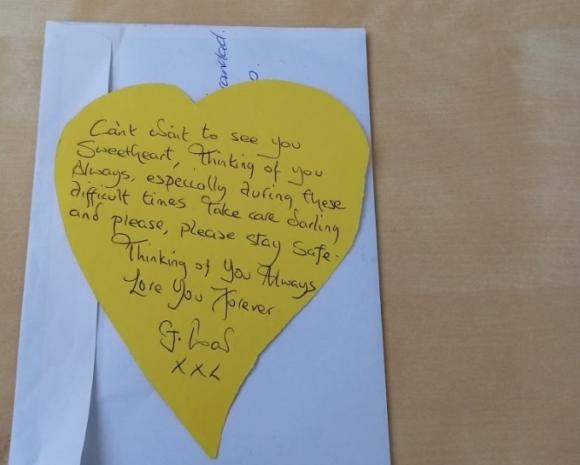 andad.
Can't Wait to see you
Sweetheart, Thinking of you
Always, especially during these
difficult times Take care Darling
and please, please stay Safe.
Thinking of You Always
Love You Forever
G.
xxx